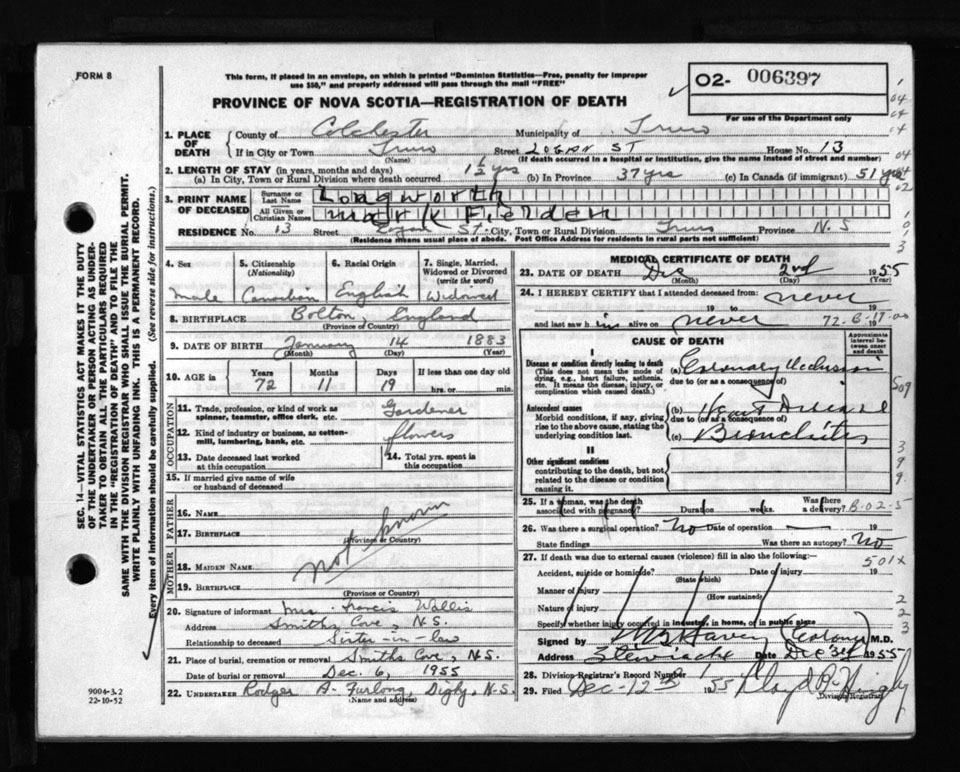 FORM 8
This form, if placed in an envelope, on which is printed "Dominion Statistics—Free, penalty for improper
use $50," and properly addressed will pass through the mail "FREE"
O2- 006397
For use of the Department only
PROVINCE OF NOVA SCOTIA—REGISTRATION OF DEATH
1. PLACE OF DEATH County of Colchester Municipality of Truro
If in City or Town Truro (Name) Street Logan ST House No. 13
(If death occurred in a hospital or institution, give the name instead of street and number)
2. LENGTH OF STAY (in years, months and days)
(a) In City, Town or Rural Division where death occurred 1½ yrs (b) In Province 37 yrs (c) In Canada (if immigrant) 51 yrs
3. PRINT NAME OF DECEASED Surname or Last Name Longworth
All Given or Christian Names Mark Fielden
RESIDENCE No. 13 Street Logan ST. City, Town or Rural Division Truro Province N.S
(Residence means usual place of abode. Post Office Address for residents in rural parts not sufficient)
4. Sex 5. Citizenship (Nationality) 6. Racial Origin 7. Single, Married, Widowed or Divorced (write the word)
male Canadian English Widowed
8. BIRTHPLACE Bolton, England
(Province of Country)
9. DATE OF BIRTH January 14 1883
(Month) (Day) (Year)
10. AGE in Years Months Days If less than one day
72 11 19 hrs. or min.
OCCUPATION
11. Trade, profession, or kind of work as spinner, teamster, office clerk, etc. Gardener
12. Kind of industry or business, as cotton-mill, lumbering, bank, etc. flowers
13. Date deceased last worked at this occupation 14. Total yrs. spent in this occupation
15. If married give name of wife or husband of deceased
FATHER
16. NAME
17. BIRTHPLACE
(Province or Country)
not known
MOTHER
18. MAIDEN NAME
19. BIRTHPLACE
(Province or Country)
20. Signature of informant Mrs. Francis Wallis
Address Smiths Cove, N.S.
Relationship to deceased Sister-in-law
21. Place of burial, cremation or removal Smiths Cove, N.S.
Date of burial or removal Dec. 6, 1955
22. UNDERTAKER Rodger A. Furlong, Digby, N.S.
(Name and address)
MEDICAL CERTIFICATE OF DEATH
23. DATE OF DEATH Dec 2nd 1955
(Month) (Day) (Year)
24. I HEREBY CERTIFY that I attended deceased from: never
19 to 19
and last saw him alive on never 19
CAUSE OF DEATH
Approximate interval between onset and death
I
Disease or condition directly leading to death
(This does not mean the mode of dying, e.g., heart failure, asthenia, etc. It means the disease, injury, or complication which caused death.)
(a) Coronary Occlusion
due to (or as a consequence of)
Antecedent causes
Morbid conditions, if any, giving rise to the above cause, stating the underlying condition last.
(b) Heart Disease
due to (or as a consequence of)
(c) Bronchitis
II
Other significant conditions
contributing to the death, but not related to the disease or condition causing it.
25. If a woman, was the death associated with pregnancy? Duration weeks. Was there a delivery?
26. Was there a surgical operation? No Date of operation — 19
State findings Was there an autopsy? No
27. If death was due to external causes (violence) fill in also the following:—
501X
Accident, suicide or homicide? (State which) Date of injury 19
Manner of injury (How sustained)
Nature of injury
Specify whether injury occurred in industry, in home, or in public place
Signed by (Coroner) M.D.
Address Stewiacke Date Dec 3rd 1955
28. Division Registrar's Record Number
29. Filed Dec-12th 1955
Division Registrar
9004-3.2
22-10-52
SEC. 14—VITAL STATISTICS ACT MAKES IT THE DUTY
OF THE UNDERTAKER OR PERSON ACTING AS UNDER-
TAKER TO OBTAIN ALL THE PARTICULARS REQUIRED
IN THE "REGISTRATION OF DEATH" AND TO FILE THE
SAME WITH THE DIVISION REGISTRAR WHO SHALL ISSUE THE BURIAL PERMIT.
WRITE PLAINLY WITH UNFADING INK. THIS IS A PERMANENT RECORD.
Every item of information should be carefully supplied. (See reverse side for instructions.)